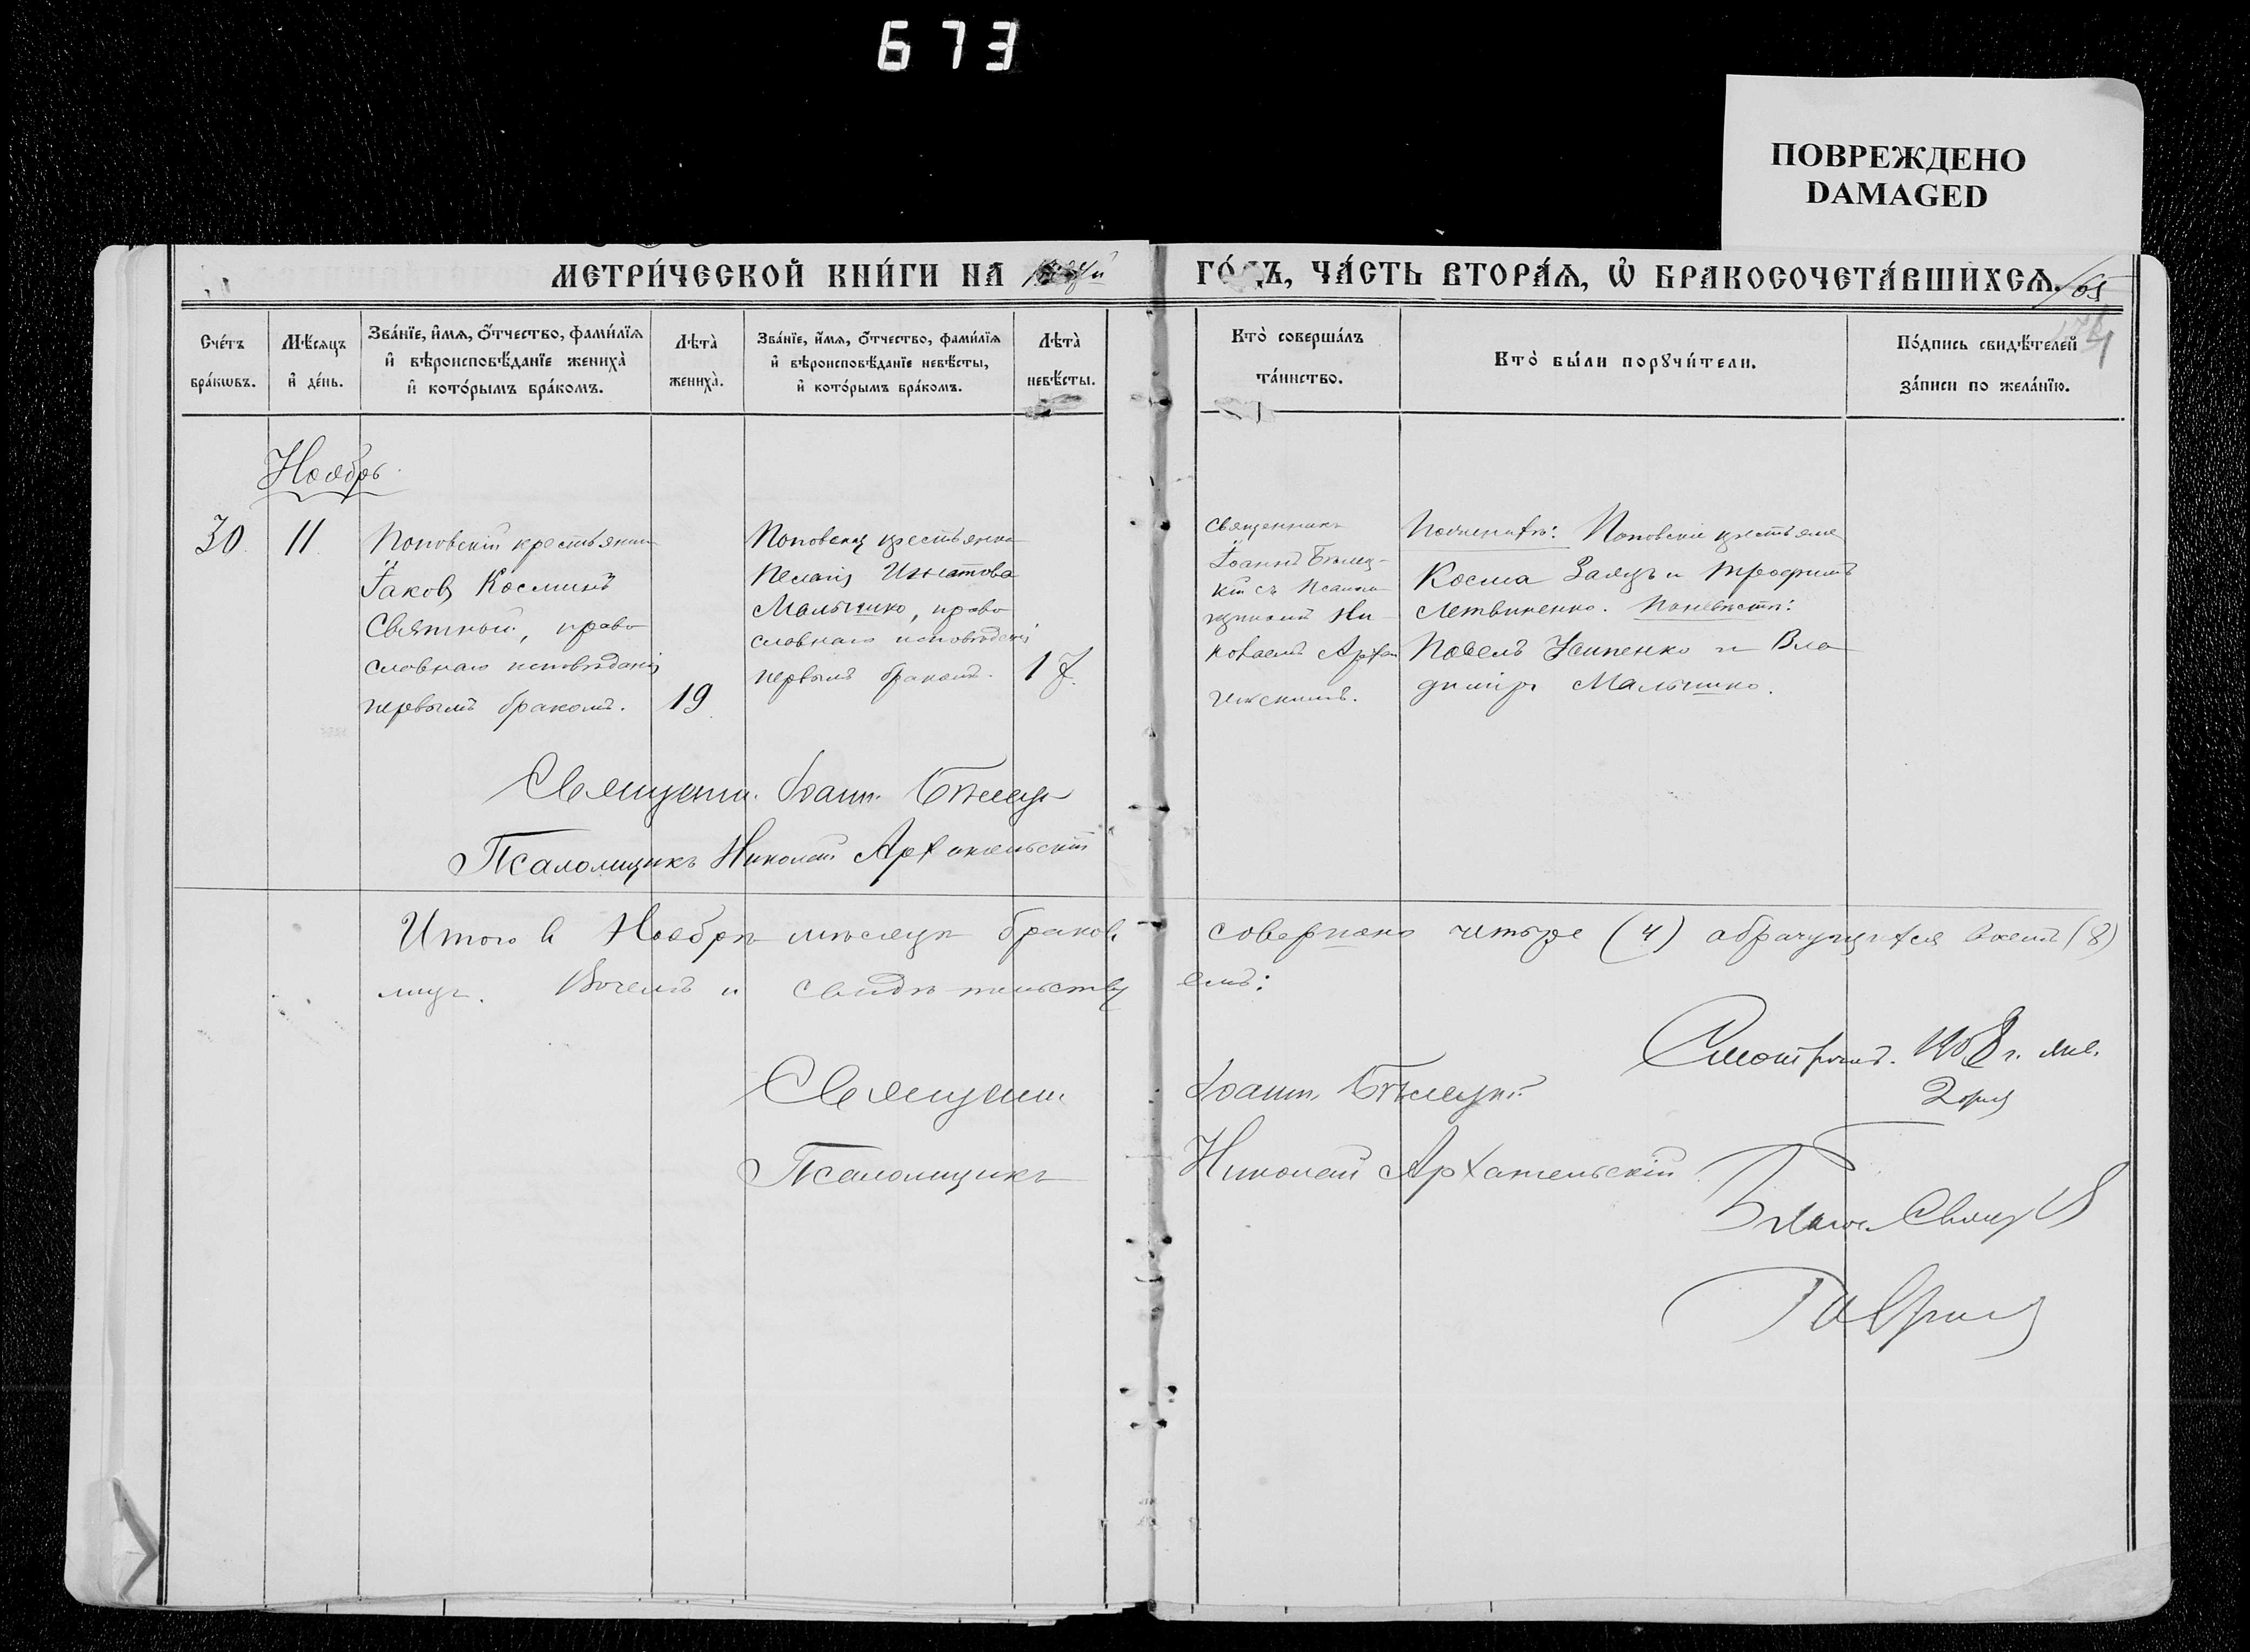 673
ПОВРЕЖДЕНО
DAMAGED
МЕТРИ́ЧЕСКОЙ КНИ́ГИ НА ГО́ДЪ, ЧА́СТЬ ВТОРА́Я, Ѡ БРАКОСОЧЕТА́ВШИХСЯ.
65
Сче́тъ бра́кѡвъ.
Мѣ́сяцъ и де́нь.
Зва́нїе, и́мѧ, о́тчество, фами́лїѧ
и вѣроисповѣ́данїе жениха̀
и кото́рымъ бра́комъ.
Лѣта̀ жениха̀.
Зва́нїе, и́мѧ, о́тчество, фами́лїѧ
и вѣроисповѣ́данїе невѣ́сты,
и кото́рымъ бра́комъ.
Лѣта̀ невѣ́сты.
Кто̀ соверша́лъ та́инство.
Кто̀ бы́ли порꙋчи́тели.
По́дпись свидѣ́телей за́писи по жела́нїю.
Ноябрь
30. 11.
Поповскій крестьянинъ
Іаковъ Косминъ
Святной, право
славнаго исповѣданія
первымъ бракомъ.
19
Поповская крестьянка
Пелагія Игнатова
Малышко, право
славнаго исповѣданія
первымъ бракомъ.
17.
Священникъ
Іоаннъ Бѣлец-
кій съ Псалом
щикомъ Ни
колаемъ Архан
гельскимъ.
По женихѣ: Поповскіе крестьяне
Косма Заяцъ и Трофимъ
Литвиненко. По невѣстѣ:
Павелъ Усипенко и Вла
диміръ Малышко.
Священн. Іоанн. Бѣлецк
Псаломщикъ Николай Архангельскій
Итого въ Ноябрѣ мѣсяцѣ браковъ совершено четыре (4) а брачущихся восемь (8)
лицъ. Въ чемъ и свидѣтельствуемъ:
Священн. Іоанн. Бѣлецкій
Псаломщикъ Николай Архангельскій
Смотрѣлъ. 1908 г. Янв.
2 дня
Благоч. Свящ.
Гаврил